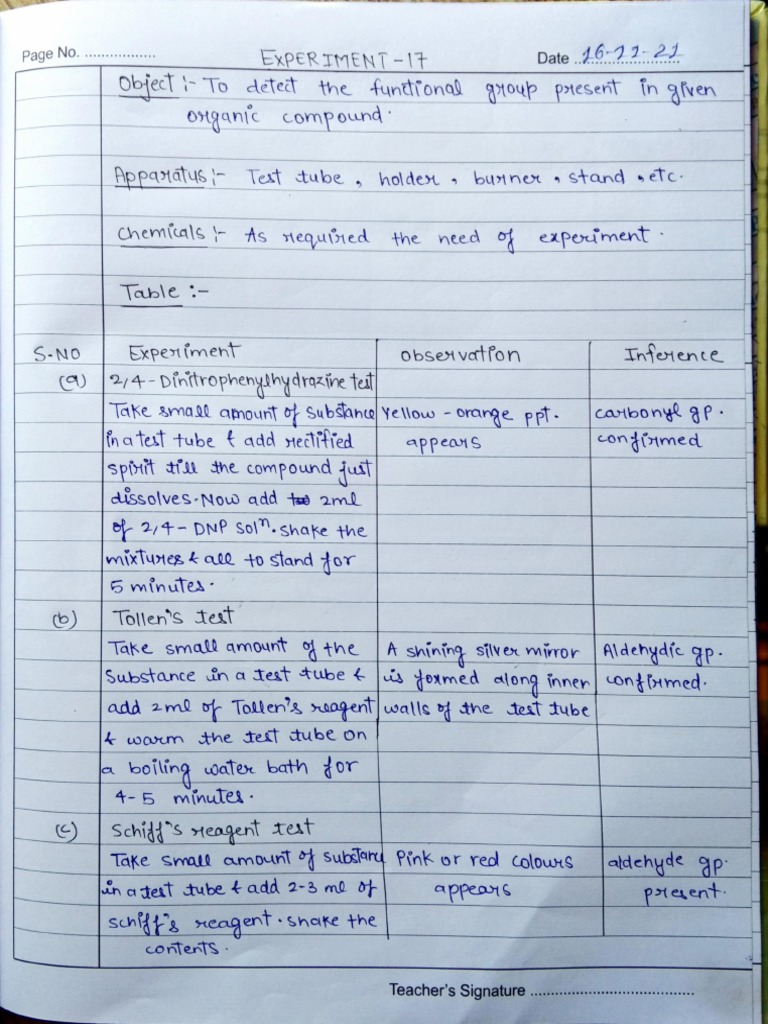 Page No. ................. EXPERIMENT-17 Date ..16-11-21
Object :- To detect the functional group present in given
organic compound.
Apparatus :- Test tube, holder, burner, stand, etc.
Chemicals :- As required the need of experiment.
Table :-
S.NO Experiment Observation Inference
(a) 2,4-Dinitrophenylhydrazine test
Take small amount of substance Yellow-orange ppt. carbonyl gp.
in a test tube & add rectified appears confirmed
spirit till the compound just
dissolves. Now add 2ml
of 2,4-DNP solⁿ. shake the
mixtures & all to stand for
5 minutes.
(b) Tollen's test
Take small amount of the A shining silver mirror Aldehydic gp.
substance in a test tube & is formed along inner confirmed.
add 2ml of Tollen's reagent walls of the test tube
& warm the test tube on
a boiling water bath for
4-5 minutes.
(c) Schiff's reagent test
Take small amount of substanc Pink or red colours aldehyde gp.
in a test tube & add 2-3 ml of appears present.
schiff's reagent. shake the
contents.
Teacher's Signature ......................................